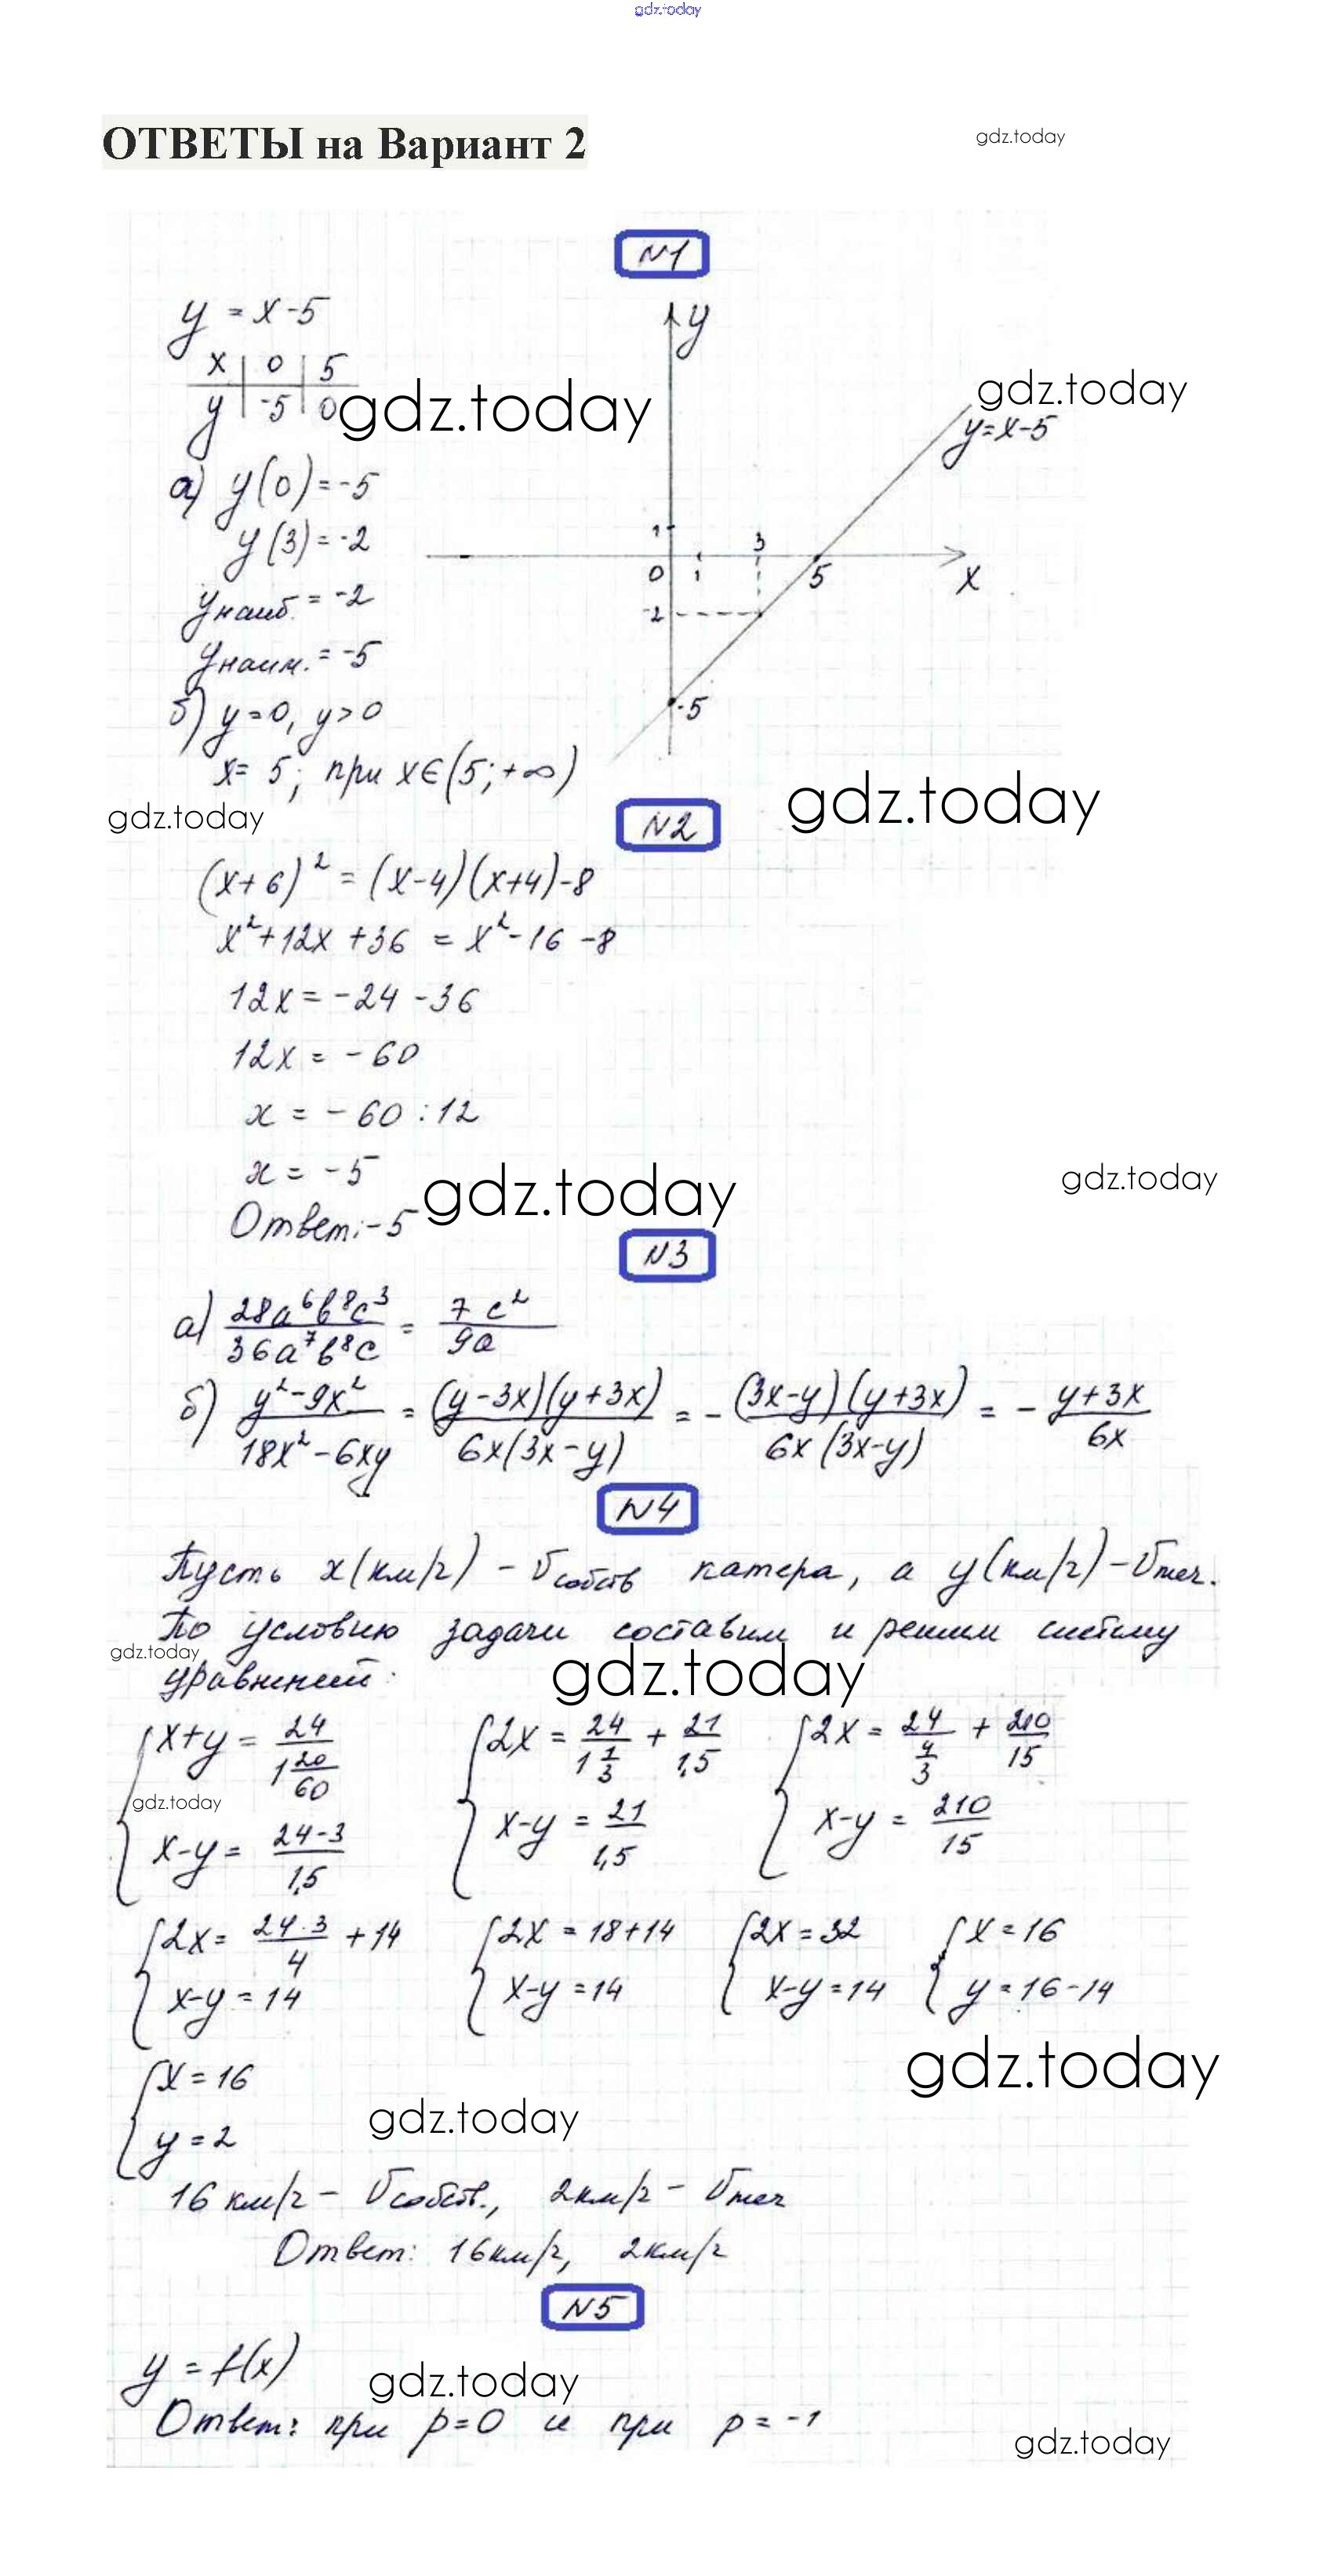 gdz.today
ОТВЕТЫ на Вариант 2
gdz.today
N1
y = x-5
x | 0 | 5
y | -5 | 0
gdz.today
y
gdz.today
y=x-5
а) y(0)=-5
y(3)=-2
yнаиб. = -2
yнаим. = -5
1
3
0
1
5
x
-2
-5
б) y=0, y>0
x= 5; при x∈(5;+∞)
gdz.today
gdz.today
N2
(x+6)² = (x-4)(x+4)-8
x²+12x+36 = x²-16-8
12x = -24-36
12x = -60
x = -60:12
x = -5
gdz.today
gdz.today
Ответ:-5
N3
а) 28a⁶b⁸c³/36a⁷b⁸c = 7c²/9a
б) y²-9x²/18x²-6xy = (y-3x)(y+3x)/6x(3x-y) = -(3x-y)(y+3x)/6x(3x-y) = -y+3x/6x
N4
Пусть x(км/ч) - Vсобств катера, а y(км/ч)-Vтеч.
По условию задачи составим и решим систему
gdz.today
gdz.today
уравнений:
{x+y = 24/1 20/60 {2x = 24/1 1/3 + 21/1,5 {2x = 24/4/3 + 210/15
gdz.today
x-y = 24-3/1,5 x-y = 21/1,5 x-y = 210/15
{2x = 24·3/4 + 14 {2x = 18+14 {2x = 32 {x = 16
x-y = 14 x-y = 14 x-y = 14 y = 16-14
gdz.today
{x = 16
y = 2
gdz.today
16 км/ч - Vсобств., 2км/ч - Vтеч
Ответ: 16км/ч, 2км/ч
N5
y = f(x)
gdz.today
Ответ: при p=0 и при p=-1
gdz.today